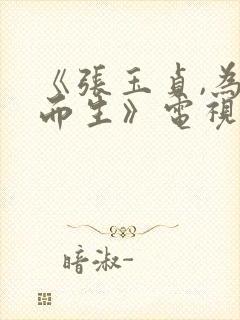 《張玉貞,為
而生》電視
暗淑-